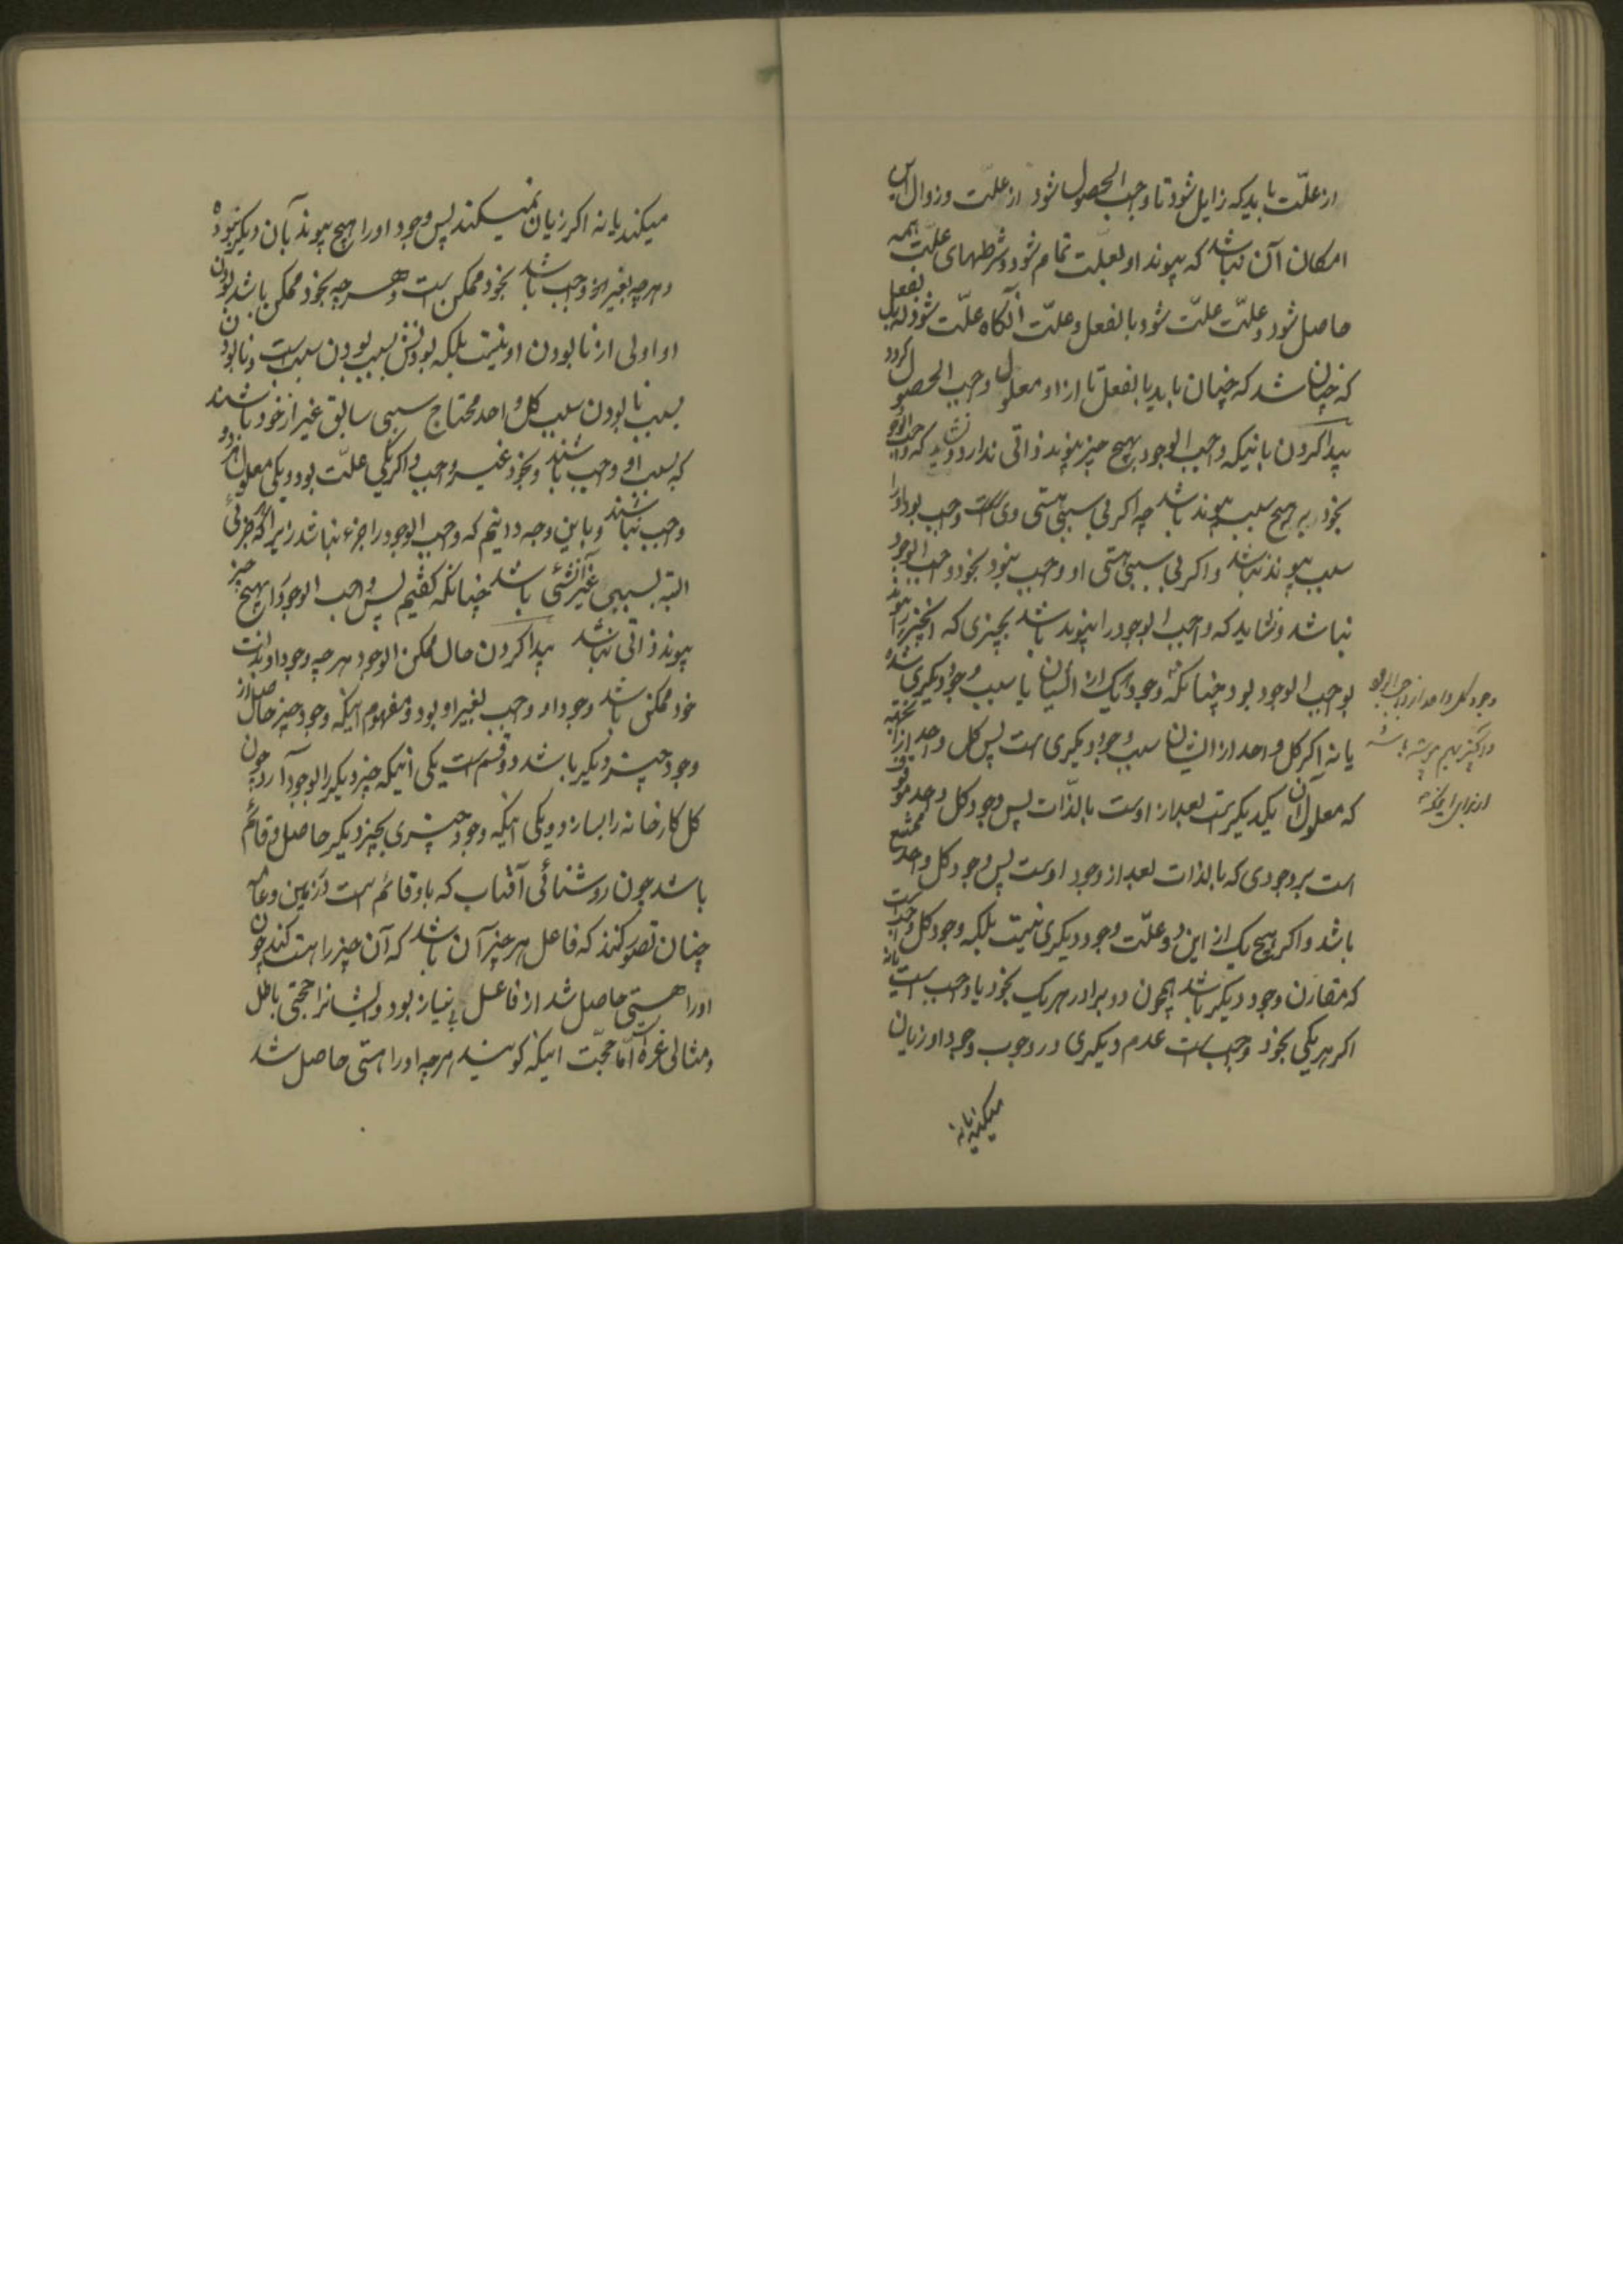 از علّت باید که زایل شود تا واجب الحصول شود از علّت و زوال این
امکان آن باشد که پیوند او بعلّت تمام شود و شرطهای علّت همه
حاصل شود و علّت علّت شود بالفعل و علّت آنگاه علّت شود بفعل
که چنان شد که چنان باید بالفعل تا از او معلول واجب الحصول کردد
پیدا کردن بانیکه واجب الوجود بهیچ چیز پیوند ذاتی ندارد و نشاید که واجب الوجود
بخود بر هیچ سبب پیوند باشد چه اکر بی سببی هستی وی واجب بود او را
سبب پیوند نباشد و اکر بی سببی هستی او واجب نبود بخود واجب الوجود
نباشد و نشاید که واجب الوجود را پیوند باشد بچیزی که آنچیز را پیوند
بواجب الوجود بود چنانکه وجود یک از ایشان یا سبب وجود دیکری باشد
یا نه اکر کل واحد از ایشان سبب وجود دیکری است پس کل واحد از آنجهه
که معلول آن یکدیکر است بعد از اوست بالذّات پس وجود کل واحد موقوف
است بر وجودی که بالذات بعد از وجود اوست پس وجود کل واحد ممتنع
باشد و اکر هیچ یک از این دو علّت وجود دیکری نیست بلکه وجود کل واحد
که مقارن وجود دیکر باشد همچون دو برادر هر یک بخود یا واجب است یا نه
اکر هر یکی بخود واجب است عدم دیکری در وجوب وجود او زیان
میکند یا نه
وجود کل واحد از واجب الوجود
میکند یا نه اکر زیان نمیکند پس وجود او را هیچ پیوند بآن دیکر نبود
و هرچه بغیر خود واجب باشد بخود ممکن است و هرچه بخود ممکن باشد بودن
او اولی از نابودن او نیست بلکه بودنش بسبب بودن سبب است و نابودن
بسبب نابودن سبب کل واحد محتاج سببی سابق غیر از خود باشند
که بسبب او واجب باشند و بخود غیر واجب و اکر یکی علّت بود و یکی معلول هر دو
واجب نباشند و باین وجه دانیم که واجب الوجود را جزء نباشد زیرا که جزئی
البته بسببی غیر آنشئی باشد چنانکه کفتیم پس واجب الوجود را بهیچ چیز
پیوند ذاتی نباشد پیدا کردن حال ممکن الوجود هرچه وجود او بذات
خود ممکن باشد وجود او واجب بغیر او بود و مفهوم اینکه وجود چیز حاصل از
وجود چیز دیکر باشد دو قسم است یکی آنیکه چیز دیکر را بوجود آرد چون
کل کارخانه را بسازد و یکی اینکه وجود چیزی بچیز دیکر حاصل و قائم
باشد چون روشنائی آفتاب که باو قائم است در زمین و عامه
چنان تصور کنند که فاعل هر چیز آن باشد که آن چیز را هست کند چون
او را هستی حاصل شد از فاعل بی نیاز بود و ایشانرا حجتی باطل
و مثالی غرّه امّا حجّت اینکه کویند هرچه او را هستی حاصل شد